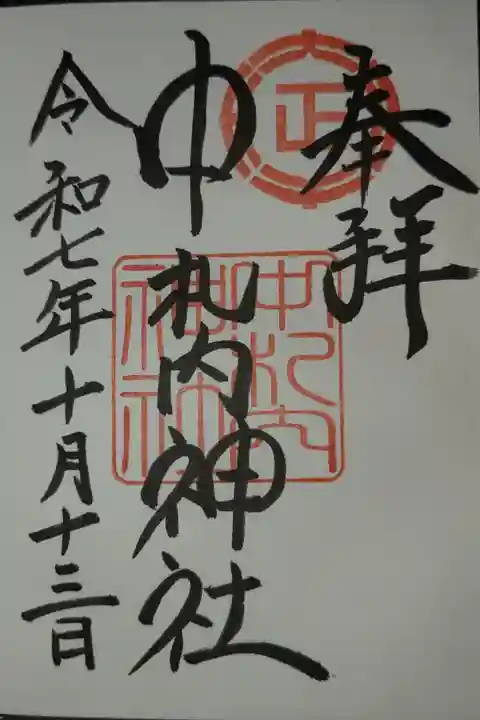 奉拝
中札内神社
令和七年十月十三日
正
中札内
神社